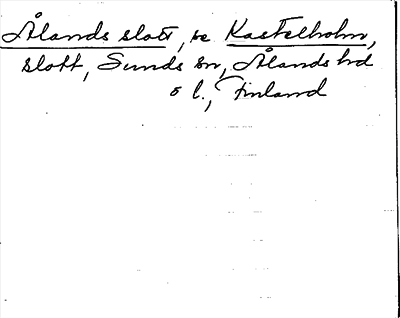 Ålands slott, se Kastelholm,
slott, Sunds sn, Ålands hd
o l., Finland